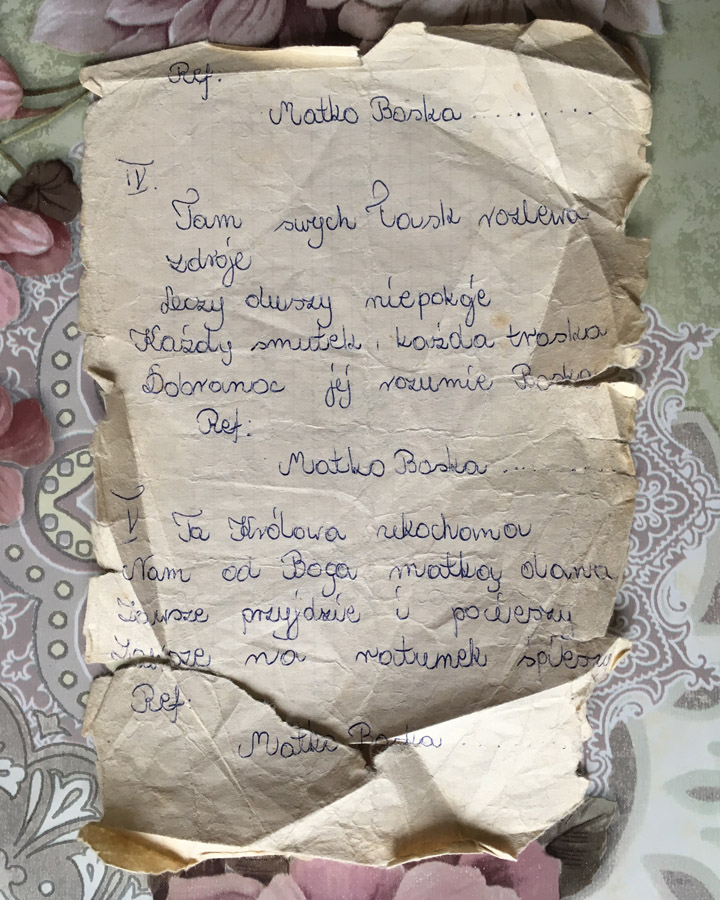 Ref.
Matko Boska ..........
IV.
Tam swych łask rozlewa
zdroje
Leczy duszy niepokoje
Każdy smutek, każda troska
Dobranoc jej rozumie Boska
Ref:
Matko Boska ..........
V Ta Królowa ukochana
Nam od Boga matką dana
Zawsze przyjdzie i pocieszy
Zawsze na ratunek śpieszy
Ref:
Matko Boska ..........